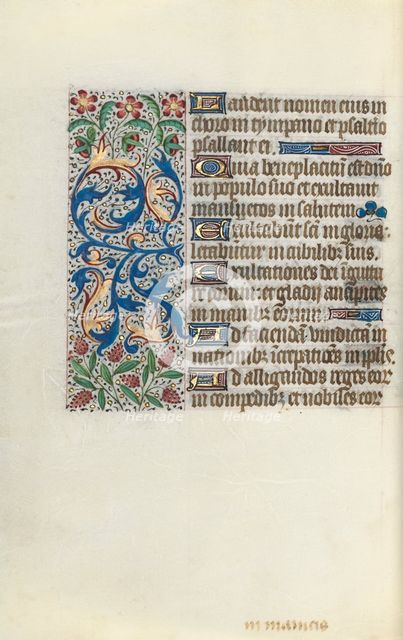 Laudent nomen eius in
choro in tympano et psalt'io
psallant ei
Quia bn̄placitū est dn̄o
in populo suo et exultauit
mansuetos in salutem
Exultabūt sc̄i in gloria:
letabūtur in cubilibꝫ suis.
Exultationes dei in gutture
eorum: et gladij ancipites
in manibꝫ eorum
Ad faciendā vindictā in
nationibꝫ: increpatiōes in pplis.
Ad alligandos reges eor
in compedibꝫ et nobiles eor
in manicis
Heritage
Heritage
Heritage
Heritage